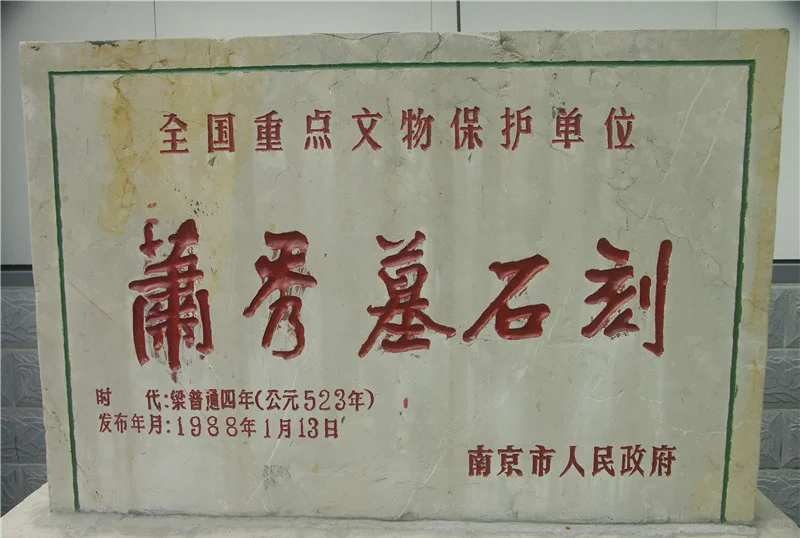 全国重点文物保护单位
蕭秀墓石刻
时 代:梁普通四年(公元523年)
发布年月:1988年1月13日
南京市人民政府